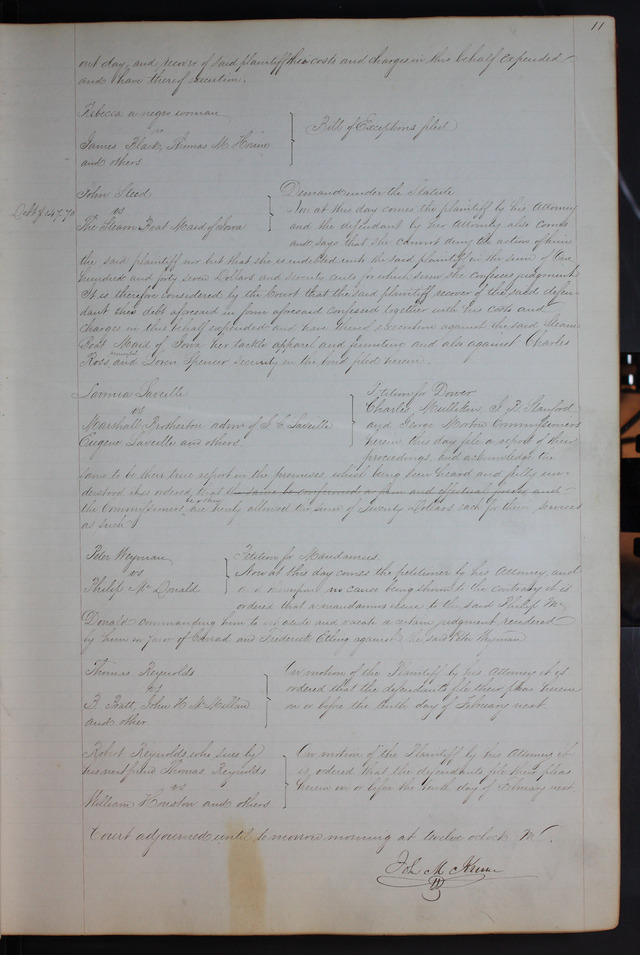 11
out day, and recover of said plaintiff their costs and charges in this behalf expended
and have thereof execution.
Rebecca a negro woman
vs
Bill of Exceptions filed
James Black, Thomas M Horine
and others
John Steed
Demand under the Statute
Debt $247.70
vs
Now at this day comes the plaintiff by his Attorney
The Steam Boat Maid of Iowa
and the defendant by her Attorney also comes
and says that she cannot deny the action of him
the said plaintiff nor but that she is indebted unto the said plaintiff in the sum of two
hundred and forty seven Dollars and seventy cents for which sum she confesses judgment
It is therefore considered by the Court that the said plaintiff recover of the said defen-
dant his debt aforesaid in form aforesaid confessed together with his costs and
charges in this behalf expended and have thereof execution against the said Steam
Boat Maid of Iowa her tackle apparel and furniture and also against Charles
Ross and Loren Spencer security in the bond filed herein.
Laville
Petition for Dower
vs
Charles Mullikin, Stanford
Marshall Brotherton admr of Laville
and George Morton Commissioners
Eugene Laville and others
herein this day file a report of their
proceedings, and acknowledge the
same to be their true report in the premises, which being seen heard and fully un-
derstood it is ordered that the same be confirmed and
the Commissioners are hereby allowed the sum of Twenty Dollars each for their services
as such
Peter Weyman
Petition for Mandamus
vs
Now at this day comes the petitioner by his Attorney, and
Philip McDonald
no cause being shown to the contrary it is
ordered that a mandamus issue to the said Philip Mc
Donald commanding him to and vacate a certain judgment rendered
by him in favor of Conrad and Frederick against the said Peter Weyman
Thomas Reynolds
On motion of the Plaintiff by his Attorney it is
vs
ordered that the defendants file their pleas herein
Pratt, John H McMillan
on or before the tenth day of February next.
and other
Robert Reynolds, who sues by
On motion of the Plaintiff by his Attorney it
his next friend Thomas Reynolds
is ordered that the defendants file their pleas
vs
herein on or before the tenth day of February next.
William Houston and others
Court adjourned until tomorrow morning at twelve oclock M.
John M Krum